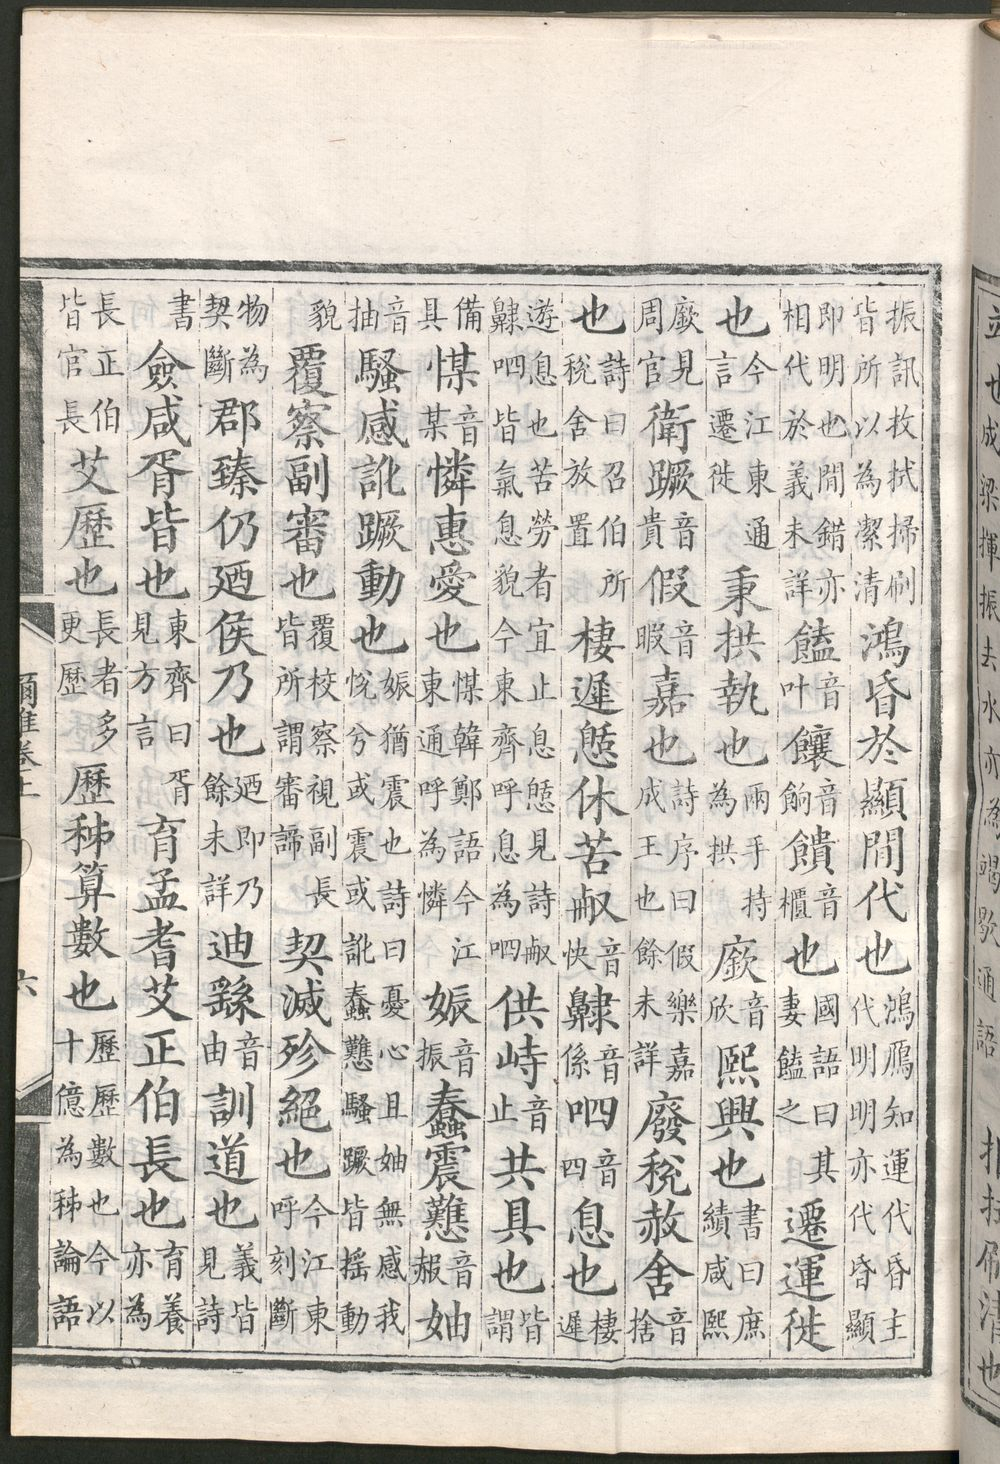 振訊抆拭掃刷皆所以為潔清鴻昏於顯間代也鴻鴈知運代昏主代明明亦代昏顯
即明也間錯亦相代於義未詳饁音叶饟音餉饋音櫃也國語曰其妻饁之遷運徙
也今江東通言遷徙秉拱執也兩手持為拱廞音欣熙興也書曰庶績咸熙
廞見周官衛蹶音貴假音暇嘉也詩序曰假樂嘉成王也餘未詳廢稅赦舍音捨
也詩曰召伯所稅舍放置棲遲憩休苦㕟音快齂音係呬音四息也棲遲
遊息也苦勞者宜止息憩見詩㕟齂呬皆氣息貌今東齊呼息為呬供峙音止共具也皆謂
備具㤿音某憐惠愛也㤿韓鄭語今江東通呼為憐娠音振蠢震戁音赧妯
音抽騷感訛蹶動也娠猶震也詩曰憂心且妯無感我帨兮或震或訛蠢戁騷蹶皆搖動
貌覆察副審也覆校察視副長皆所謂審諦契滅殄絕也今江東呼刻斷
物為契斷郡臻仍迺侯乃也迺即乃餘未詳迪繇音由訓道也義皆見詩
書僉咸胥皆也東齊曰胥見方言育孟耆艾正伯長也育養亦為
長正伯皆官長艾歷也長者多更歷歷秭算數也歷歷數也今以十億為秭論語
爾雅卷上
六